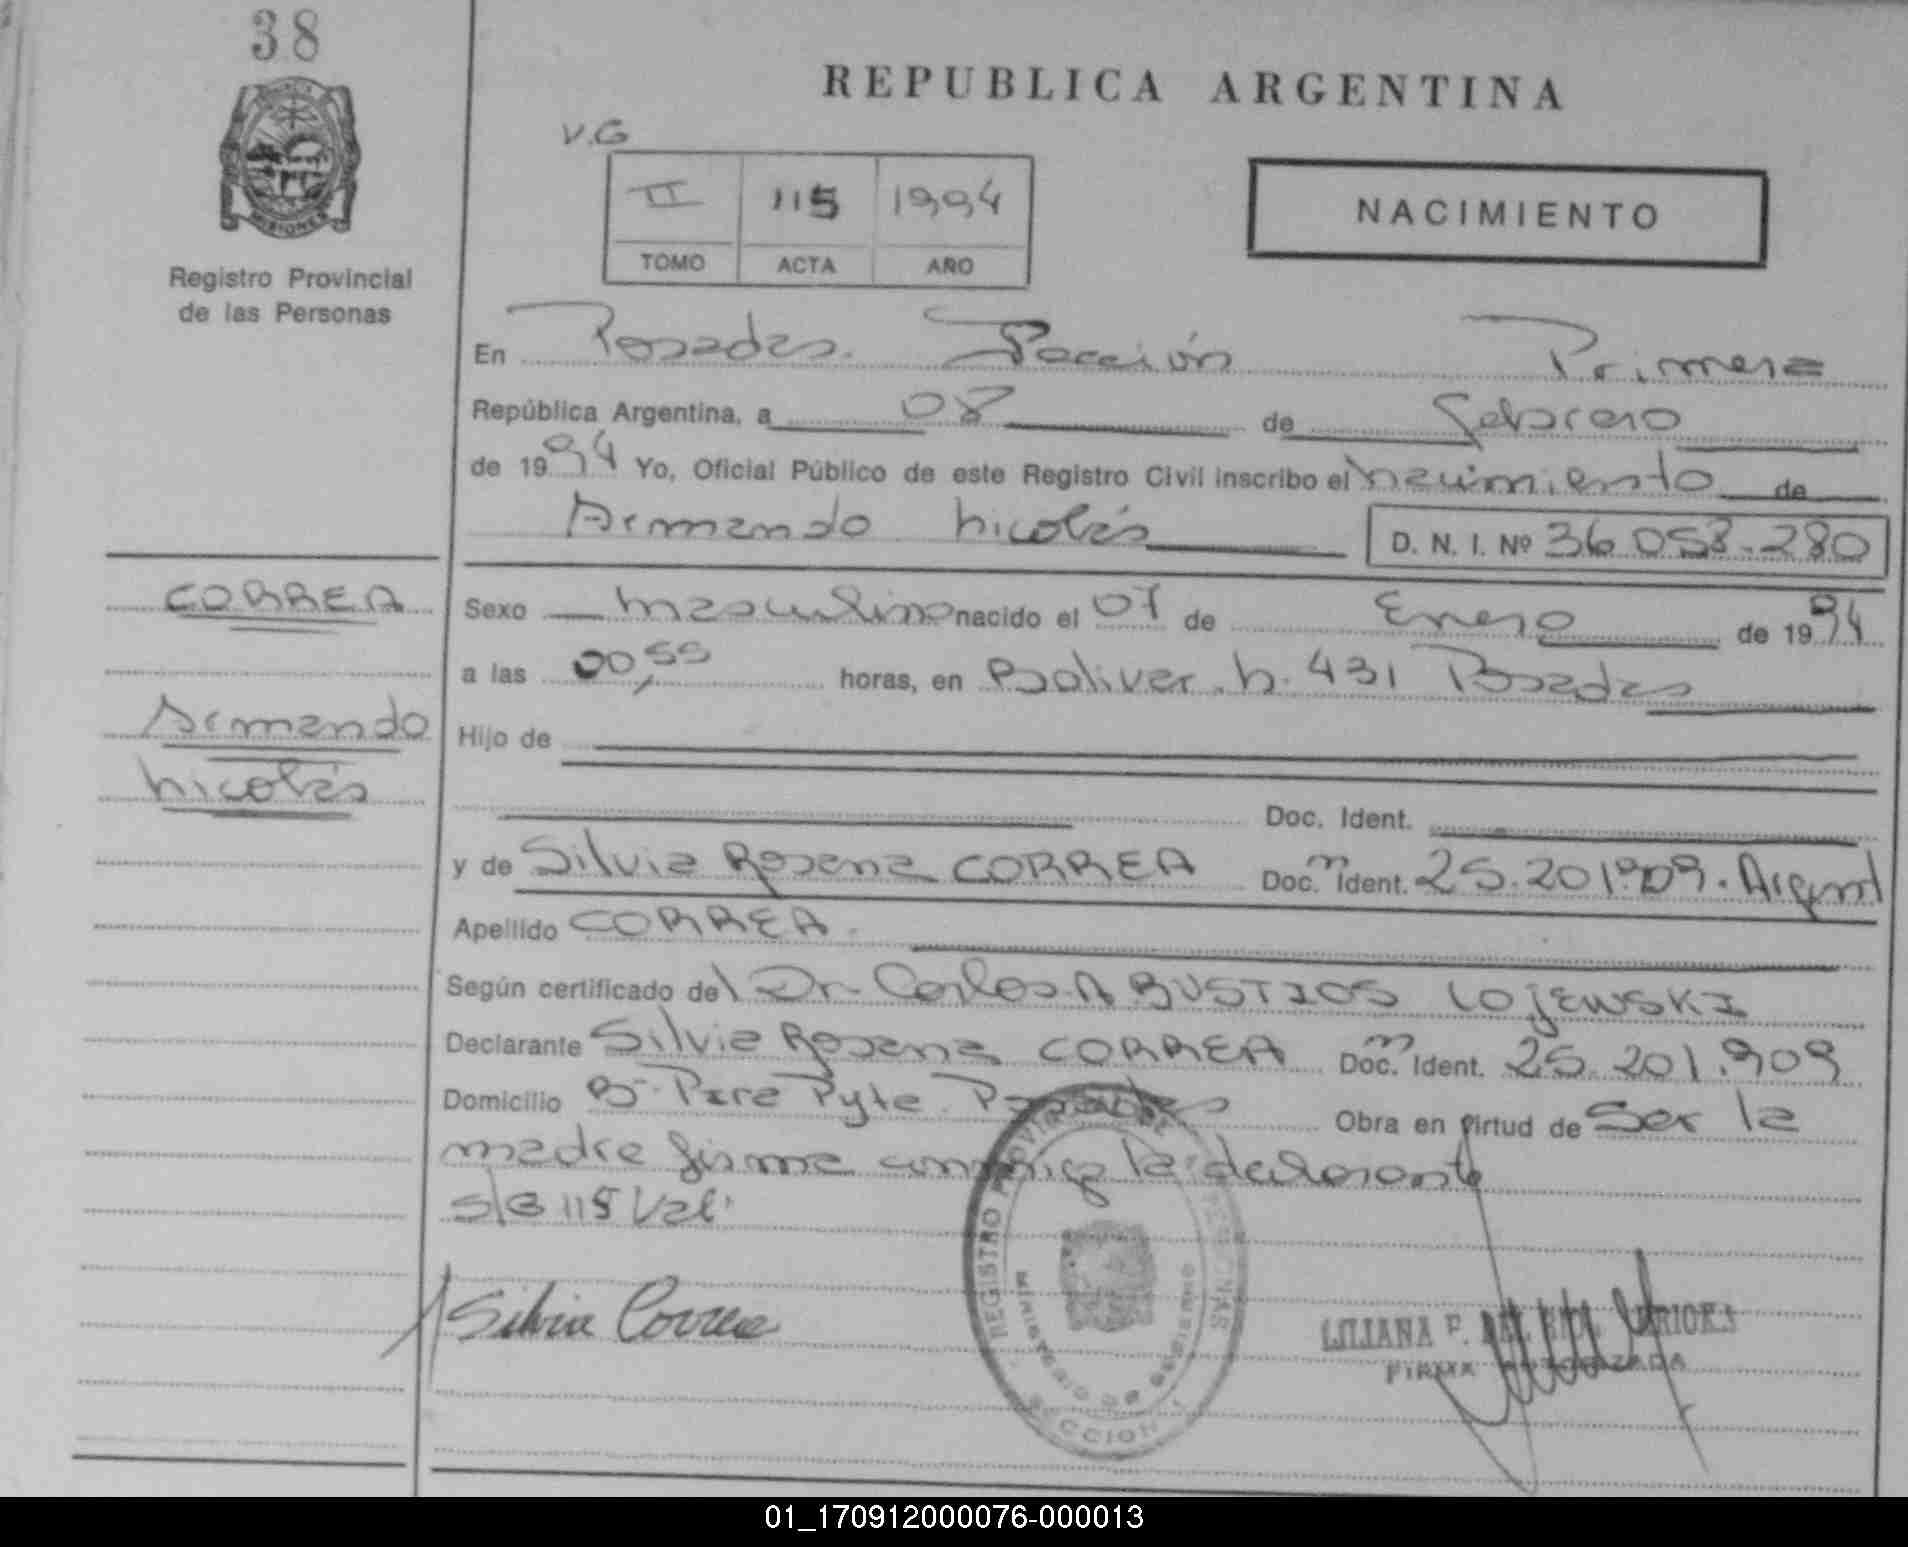 38
REPUBLICA ARGENTINA
V.G
II 115 1994
TOMO ACTA AÑO
NACIMIENTO
MISIONES
Registro Provincial
de las Personas
En Posadas. Sección Primera
República Argentina, a 08 de febrero
de 1994 Yo, Oficial Público de este Registro Civil inscribo el nacimiento de
Armando Nicolás D. N. I. Nº 36.058.280
CORREA
Armando
Nicolás
Sexo masculino nacido el 07 de Enero de 1994
a las 00,55 horas, en Bolivar. N. 431 Posadas
Hijo de
Doc. Ident.
y de Silvia Rosana CORREA Doc. Ident. 25.201.909. Argent
Apellido CORREA.
Según certificado del Dr. Carlos A BUSTIOS LOJEWSKI
Declarante Silvia Rosana CORREA Doc. Ident. 25.201.909
Domicilio Bº Pira Pyte. Posadas Obra en virtud de Ser la
madre firma conmigo la declarante
S/G 115 Val.
Silvia Correa
REGISTRO PROVINCIAL DE LAS PERSONAS
MINISTERIO DE GOBIERNO
SECCION 1
LILIANA F.
FIRMA AUTORIZADA
01_170912000076-000013